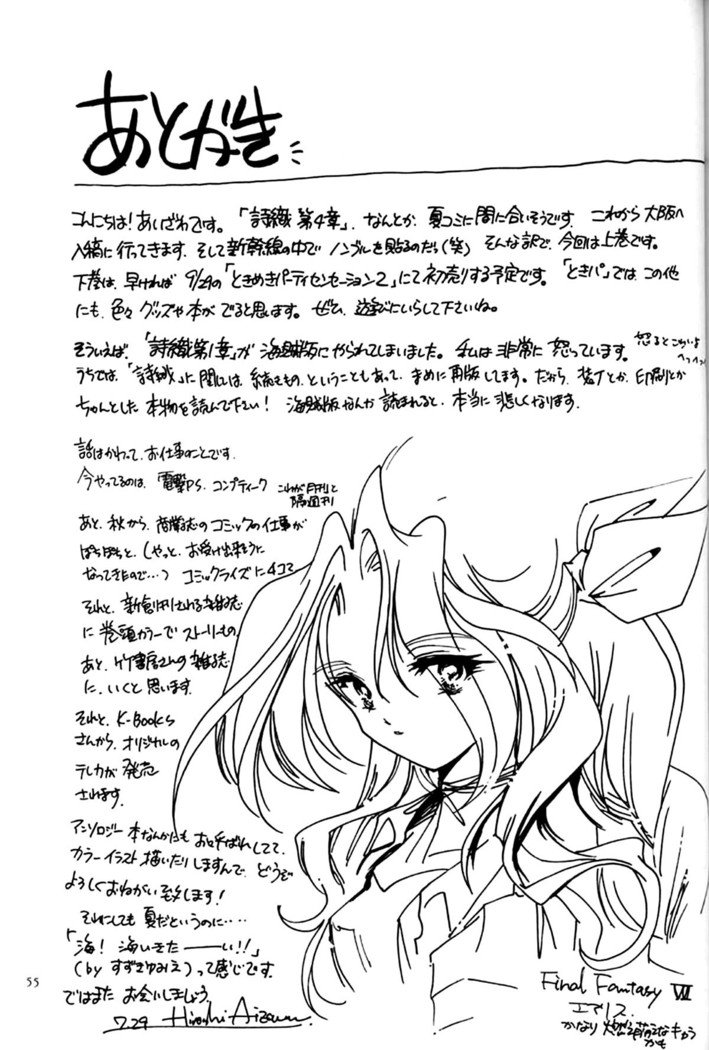 あとがき
こんにちは!あいざわです。「詩織 第4章」、なんとか、夏コミに間に合いそうです。これから大阪へ
入稿に行ってきます。そして新幹線の中でノンブルを貼るのだ!(笑)そんな訳で、今回は上巻です。
下巻は、早ければ9/29の「ときめきパーティセンセーション2」にて初売りする予定です。「ときパ」では、この他
にも、色々グッズや本がでると思います。ぜひ、遊びにいらして下さいね。
そういえば、「詩織第1章」が海賊版にやられてしまいました。私は非常に怒っています。
怒るとこわいよ
うちでは、「詩織」に関しては、続きもの、ということもあって、まめに再版してます。だから、装丁とか、印刷とか
ちゃんとした本物を読んで下さい!海賊版なんか読まれると、本当に悲しくなります。
話はかわって、お仕事のことです。
今やってるのは、電撃PS、コンプティーク
これが月刊と
隔週刊
あと、秋から、商業誌のコミックの仕事が
ぽちぽちと、(やっと、お受け出来るように
なってきたので…)コミックライズに4コマ
それと、新創刊される雑誌
に巻頭カラーでストーリーもの。
あと、竹書房さんの雑誌
に、いくと思います。
それと、K-Books
さんから、オリジナルの
テレカが発売
されます。
アンソロジー本なんかにもお呼ばれしてて、
カラーイラスト描いたりしますんで、どうぞ
よろしくおねがい致します!
それにしても夏だというのに‥‥
「海!海いきたーーい!!」
(byすずきゆみえ)って感じです。
ではまたお会いしましょう。
7.29 Hiroshi Aizawa.
Final Fantasy VII
エアリス。
かなり燃え萌えなキャラ
かも
55